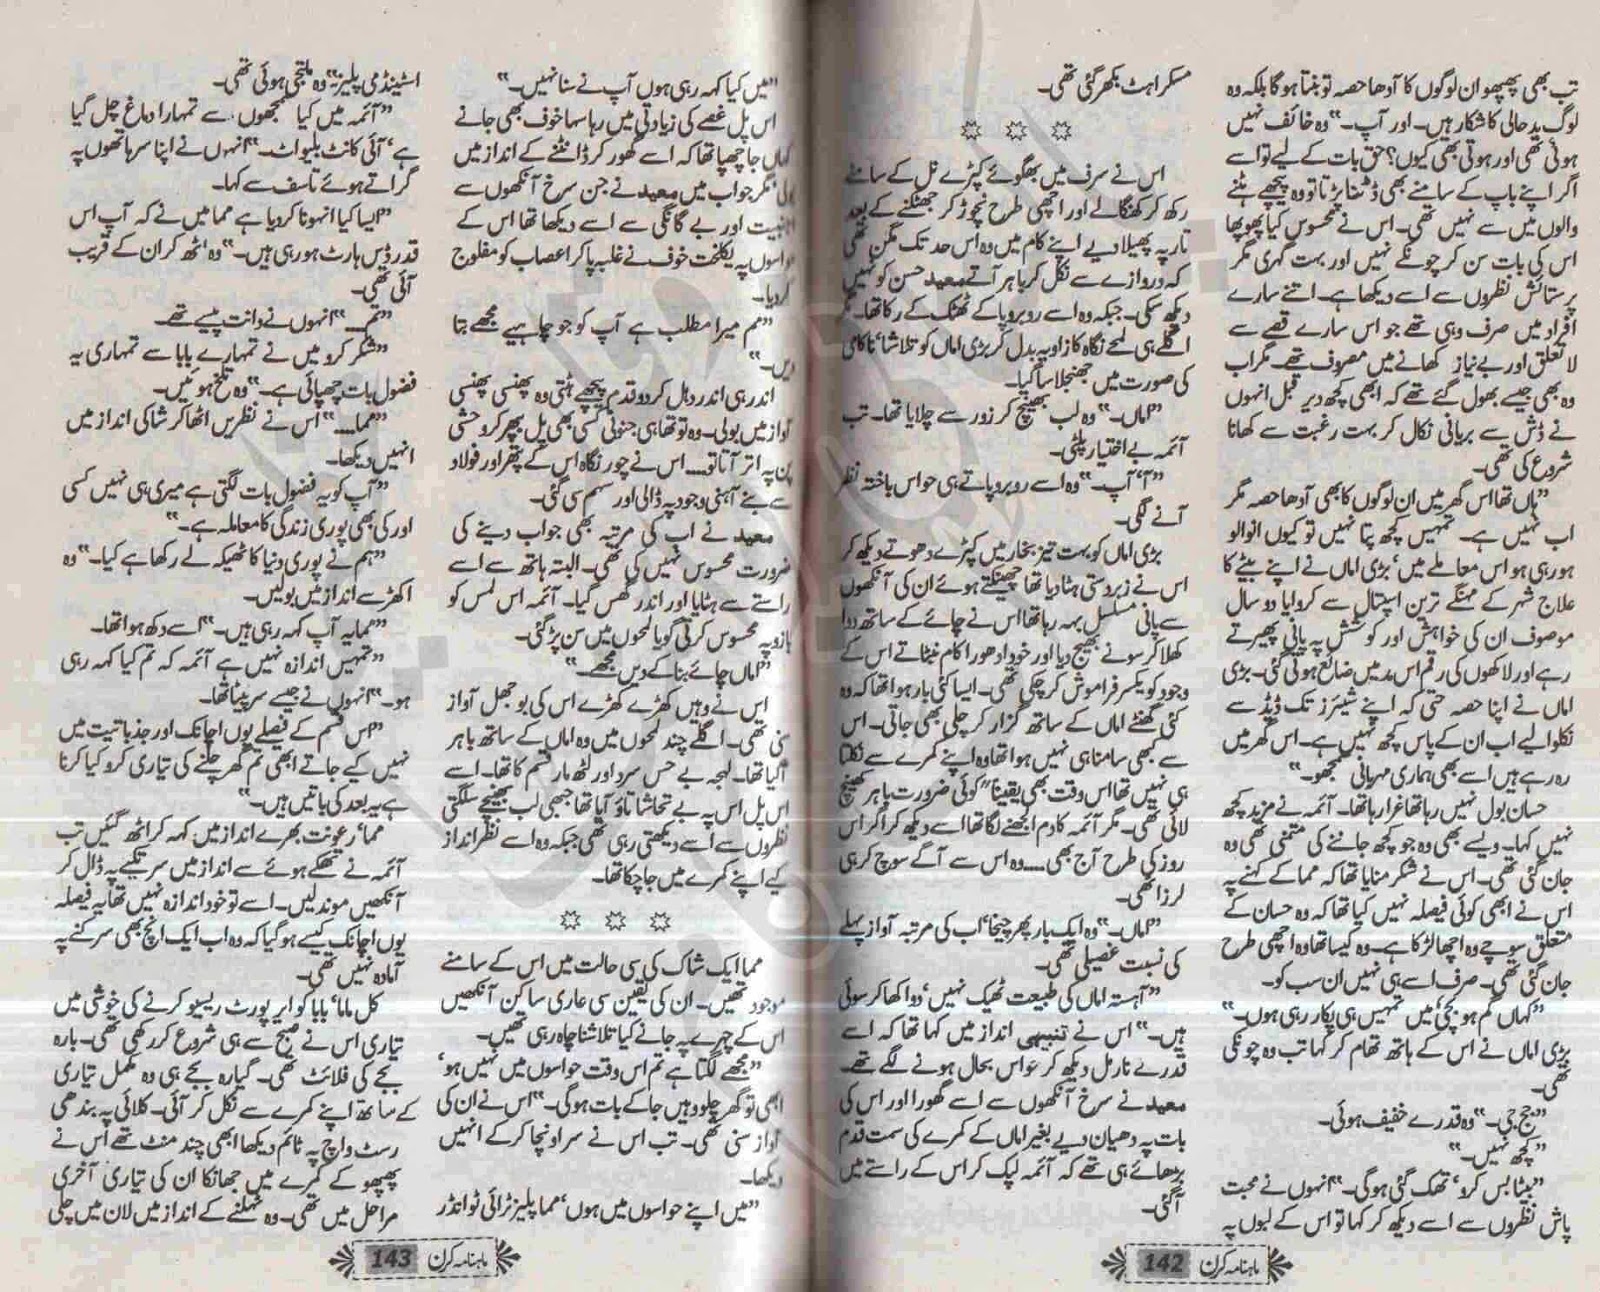 تب بھی پھپھو ان لوگوں کا آدھا حصہ تو بنتا ہو گا بلکہ وہ
لوگ بدحالی کا شکار ہیں۔ اور آپ۔“ وہ خائف نہیں
ہوئی تھی اور ہوتی بھی کیوں؟ حق بات کے لیے تو اسے
اگر اپنے باپ کے سامنے بھی ڈٹنا پڑتا تو وہ پیچھے ہٹنے
والوں میں سے نہیں تھی۔ اس نے محسوس کیا پھوپھا
اس کی بات سن کر چونکے نہیں اور بہت گہری مگر
پرستائش نظروں سے اسے دیکھا ہے۔ اتنے سارے
افراد میں صرف وہی تھے جو اس سارے قصے سے
لا تعلق اور بے نیاز کھانے میں مصروف تھے۔ مگر اب
وہ بھی جیسے بھول گئے تھے کہ ابھی کچھ دیر قبل انہوں
نے ڈش سے بریانی نکال کر بہت رغبت سے کھانا
شروع کی تھی۔
”ہاں تھا اس گھر میں ان لوگوں کا بھی آدھا حصہ مگر
اب نہیں ہے۔ تمہیں کچھ پتا نہیں تو کیوں انوالو
ہو رہی ہو اس معاملے میں‘ بڑی اماں نے اپنے بیٹے کا
علاج شہر کے مہنگے ترین اسپتال سے کروایا دو سال
موصوف ان کی خواہش اور کوشش پہ پانی پھیرتے
رہے اور لاکھوں کی رقم اس مد میں ضائع ہوتی گئی۔ بڑی
اماں نے اپنا حصہ حتی کہ اپنے شیئرز تک ڈیڈ سے
نکلوا لیے اب ان کے پاس کچھ نہیں ہے۔ اس گھر میں
رہ رہے ہیں اسے بھی ہماری مہربانی سمجھو۔“
حسان بول نہیں رہا تھا غرا رہا تھا۔ آئمہ نے مزید کچھ
نہیں کہا۔ ویسے بھی وہ جو کچھ جاننے کی متمنی تھی وہ
جان گئی تھی۔ اس نے شکر منایا تھا کہ مما کے کہنے پہ
اس نے ابھی کوئی فیصلہ نہیں کیا تھا کہ وہ حسان کے
متعلق سوچے وہ اچھا لڑکا ہے۔ وہ کیسا تھا وہ اچھی طرح
جان گئی تھی۔ صرف اسے ہی نہیں ان سب کو۔
”کہاں گم ہو بچی‘ میں تمہیں ہی پکار رہی ہوں۔“
بڑی اماں نے اس کے ہاتھ تھام کر کہا تب وہ چونکی
تھی۔
”جج جی۔“ وہ قدرے خفیف ہوئی۔
”کچھ نہیں۔“
”بیٹا بس کرو‘ تھک گئی ہو گی۔“ انہوں نے محبت
پاش نظروں سے اسے دیکھ کر کہا تو اس کے لبوں پہ
مسکراہٹ بکھر گئی تھی۔
اس نے سرف میں بھگوئے کپڑے نل کے سامنے
رکھ کر کھنگالے اور اچھی طرح نچوڑ کر جھٹکنے کے بعد
تار پہ پھیلا دیے اپنے کام میں وہ اس حد تک مگن تھی
کہ دروازے سے نکل کر باہر آتے معید حسن کو نہیں
دیکھ سکی۔ جبکہ وہ اسے روبرو پا کے ٹھٹک کے رکا تھا۔
اگلے ہی لمحے نگاہ کا زاویہ بدل کر بڑی اماں کو تلاشا‘ ناکامی
کی صورت میں جھنجلا سا گیا۔
”اماں۔“ وہ لب بھینچ کر زور سے چلایا تھا۔ تب
آئمہ بے اختیار پلٹی۔
”آ‘ آپ۔“ وہ اسے روبرو پاتے ہی حواس باختہ نظر
آنے لگی۔
بڑی اماں کو بہت تیز بخار میں کپڑے دھوتے دیکھ کر
اس نے زبردستی ہٹا دیا تھا چھینکتے ہوئے ان کی آنکھوں
سے پانی مسلسل بہہ رہا تھا اس نے چائے کے ساتھ دوا
کھلا کر سونے بھیج دیا اور خود ادھورا کام نپٹاتے اس کے
وجود کو یکسر فراموش کر چکی تھی۔ ایسا کئی بار ہوا تھا کہ وہ
کئی گھنٹے اماں کے ساتھ گزار کر چلی بھی جاتی۔ اس
سے کبھی سامنا ہی نہیں ہوا تھا وہ اپنے کمرے سے نکلتا
ہی نہیں تھا اس وقت بھی یقیناً ”کوئی ضرورت باہر کھینچ
لائی تھی۔ مگر آئمہ کا دم الجھنے لگا تھا اسے دیکھ کر اگر اس
روز کی طرح آج بھی..... وہ اس سے آگے سوچ کر ہی
لرزا تھی۔
”اماں۔“ وہ ایک بار پھر چیخا‘ اب کی مرتبہ آواز پہلے
کی نسبت غصیلی تھی۔
”آہستہ اماں کی طبیعت ٹھیک نہیں‘ دوا کھا کر سوئی
ہیں۔“ اس نے تنبیہی انداز میں کہا تھا کہ اسے
قدرے نارمل دیکھ کر حواس بحال ہونے لگے تھے۔
معید نے سرخ آنکھوں سے اسے گھورا اور اس کی
بات پہ دھیان دیے بغیر اماں کے کمرے کی سمت قدم
بڑھائے ہی تھے کہ آئمہ لپک کر اس کے راستے میں
آ گئی۔
ماہنامہ کرن 142
”میں کیا کہہ رہی ہوں آپ نے سنا نہیں۔“
اس پل غصے کی زیادتی میں رہا سہا خوف بھی جانے
کہاں جا چھپا تھا کہ اسے گھور کر ڈانٹنے کے انداز میں
بولی‘ مگر جواب میں معید نے جن سرخ آنکھوں سے
اجنبیت اور بے گانگی سے اسے دیکھا تھا اس کے
حواسوں پہ یکلخت خوف نے غلبہ پا کر اعصاب کو مفلوج
کر دیا۔
”مم میرا مطلب ہے آپ کو جو چاہیے مجھے بتا
دیں۔“
اندر ہی اندر دہل کر دو قدم پیچھے ہٹتی وہ پھنسی پھنسی
آواز میں بولی۔ وہ تو تھا ہی جنونی کسی بھی پل بپھر کر وحشی
پن پہ اتر آتا تو.... اس نے چور نگاہ اس کے پتھر اور فولاد
سے بنے آہنی وجود پہ ڈالی اور سہم سی گئی۔
معید نے اب کی مرتبہ بھی جواب دینے کی
ضرورت محسوس نہیں کی تھی۔ البتہ ہاتھ سے اسے
راستے سے ہٹایا اور اندر گھس گیا۔ آئمہ اس لمس کو
بازو پہ محسوس کرتی گویا لمحوں میں سن پڑ گئی۔
”اماں چائے بنا کے دیں مجھے۔“
اس نے وہیں کھڑے کھڑے اس کی بوجھل آواز
سنی تھی۔ اگلے چند لمحوں میں وہ اماں کے ساتھ باہر
آ گیا تھا۔ لہجہ بے حس سرد اور لٹھ مار قسم کا تھا۔ اسے
اس پل اس پہ بے تحاشا تاؤ آیا تھا جبھی لب بھینچے سلگتی
نظروں سے اسے دیکھتی رہی تھی جبکہ وہ اسے نظر انداز
کیے اپنے کمرے میں جا چکا تھا۔
مما ایک شاک کی سی حالت میں اس کے سامنے
موجود تھیں۔ ان کی یقین سی عاری ساکن آنکھیں
اس کے چہرے پہ جانے کیا تلاشنا چاہ رہی تھیں۔
”مجھے لگتا ہے تم اس وقت حواسوں میں نہیں ہو‘
ابھی تو گھر چلو وہیں جا کے بات ہو گی۔“ اس نے ان کی
آواز سنی تھی۔ تب اس نے سر اونچا کر کے انہیں
دیکھا۔
”میں اپنے حواسوں میں ہوں‘ مما پلیز ٹرائی ٹو انڈر
اسٹینڈ می پلیز۔“ وہ ملتجی ہوئی تھی۔
”آئمہ میں کیا سمجھوں سے تمہارا دماغ چل گیا
ہے‘ آئی کانٹ بلیو اٹ۔“ انہوں نے اپنا سر ہاتھوں پہ
گراتے ہوئے تاسف سے کہا۔
”ایسا کیا انہونا کر دیا ہے مما میں نے کہ آپ اس
قدر ڈس ہارٹ ہو رہی ہیں۔“ وہ اٹھ کر ان کے قریب
آئی تھی۔
”تم....“ انہوں نے دانت پیسے تھے۔
”شکر کرو میں نے تمہارے بابا سے تمہاری یہ
فضول بات چھپائی ہے۔“ وہ تلخ ہوئیں۔
”مما....“ اس نے نظریں اٹھا کر شاکی انداز میں
انہیں دیکھا۔
”آپ کو یہ فضول بات لگتی ہے میری ہی نہیں کسی
اور کی بھی پوری زندگی کا معاملہ ہے۔“
”ہم نے پوری دنیا کا ٹھیکہ لے رکھا ہے کیا۔“ وہ
اکھڑے انداز میں بولیں۔
”مما یہ آپ کہہ رہی ہیں۔“ اسے دکھ ہوا تھا۔
”تمہیں اندازہ نہیں ہے آئمہ کہ تم کیا کہہ رہی
ہو۔“ انہوں نے جیسے سر پیٹا تھا۔
”اس قسم کے فیصلے یوں اچانک اور جذباتیت میں
نہیں کیے جاتے ابھی تم گھر چلنے کی تیاری کرو کیا کرنا
ہے یہ بعد کی باتیں ہیں۔“
مما‘ رعونت بھرے انداز میں کہہ کر اٹھ گئیں تب
آئمہ نے تھکے ہوئے سے انداز میں سر تکیے پہ ڈال کر
آنکھیں موند لیں۔ اسے تو خود اندازہ نہیں تھا یہ فیصلہ
یوں اچانک کیسے ہو گیا کہ وہ اب ایک انچ بھی سرکنے پہ
آمادہ نہیں تھی۔
کل ماما‘ بابا کو ایر پورٹ ریسیو کرنے کی خوشی میں
تیاری اس نے صبح سے ہی شروع کر رکھی تھی۔ بارہ
بجے کی فلائٹ تھی۔ گیارہ بجے ہی وہ مکمل تیاری
کے ساتھ اپنے کمرے سے نکل کر آئی۔ کلائی پہ بندھی
رسٹ واچ پہ ٹائم دیکھا ابھی چند منٹ تھے اس نے
پھپھو کے کمرے میں جھانکا ان کی تیاری آخری
مراحل میں تھی۔ وہ ٹہلنے کے انداز میں لان میں چلی
ماہنامہ کرن 143